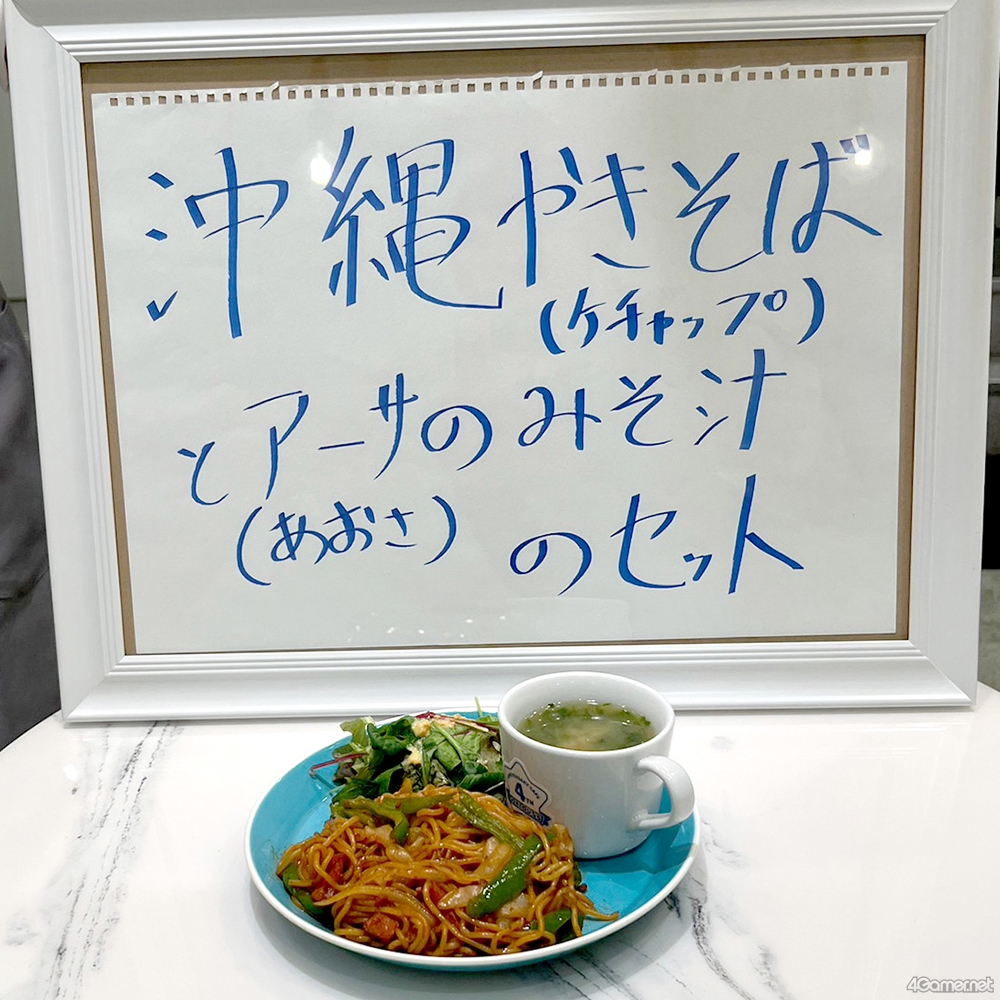 沖縄やきそば
(ケチャップ)
とアーサのみそ汁
(あおさ)
のセット
4TH
4Gamer.net